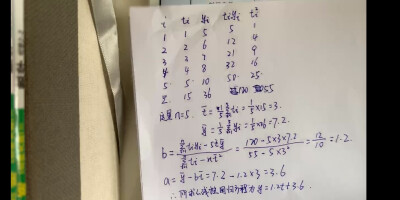 i ti yi tiyi ti²
1 1 5 5 1
2 2 6 12 4
3 3 7 21 9
4 4 8 32 16
5 5 10 50 25
Σ 15 36 120 55
这里n=5. t̄=1/5 Σti=1/5×15=3.
ȳ=1/5 Σyi=1/5×36=7.2.
b=(Σtiyi-5t̄ȳ)/(Σti²-nt̄²)=(120-5×3×7.2)/(55-5×3²)=12/10=1.2.
a=ȳ-bt̄=7.2-1.2×3=3.6
∴所求线性回归方程为 y=1.2t+3.6.